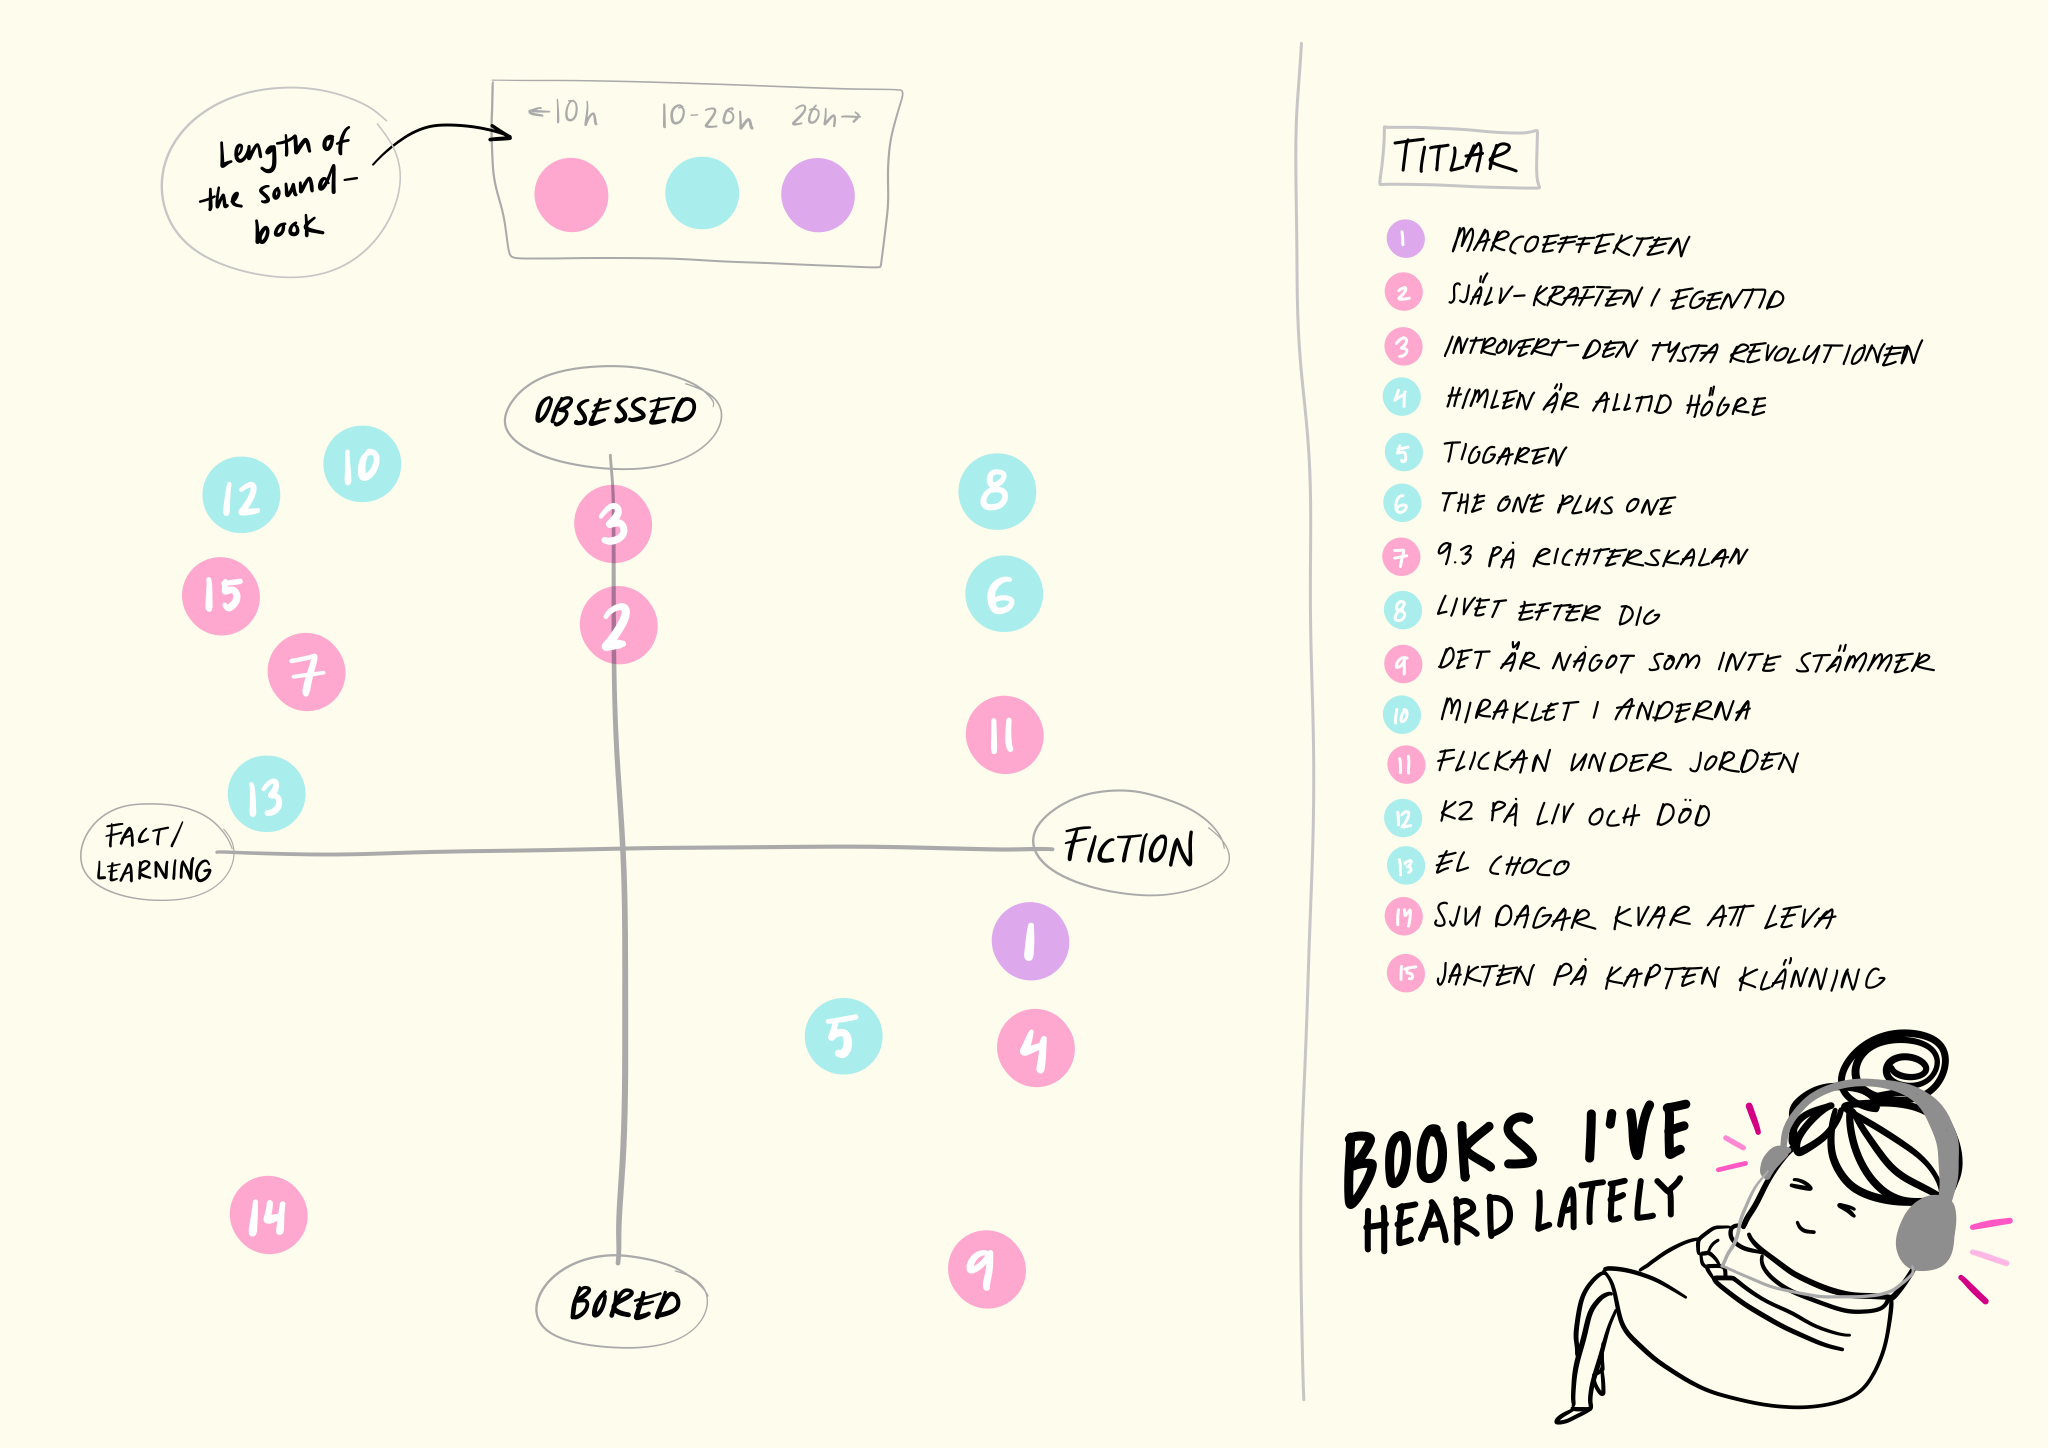 Length of
the sound-
book
←10h
10-20h
20h→
OBSESSED
10
12
8
3
15
6
2
7
11
13
FACT/
LEARNING
FICTION
1
5
4
14
9
BORED
TITLAR
1 MARCOEFFEKTEN
2 SJÄLV-KRAFTEN I EGENTID
3 INTROVERT-DEN TYSTA REVOLUTIONEN
4 HIMLEN ÄR ALLTID HÖGRE
5 TIGGAREN
6 THE ONE PLUS ONE
7 9.3 PÅ RICHTERSKALAN
8 LIVET EFTER DIG
9 DET ÄR NÅGOT SOM INTE STÄMMER
10 MIRAKLET I ANDERNA
11 FLICKAN UNDER JORDEN
12 K2 PÅ LIV OCH DÖD
13 EL CHOCO
14 SJU DAGAR KVAR ATT LEVA
15 JAKTEN PÅ KAPTEN KLÄNNING
BOOKS I'VE
HEARD LATELY